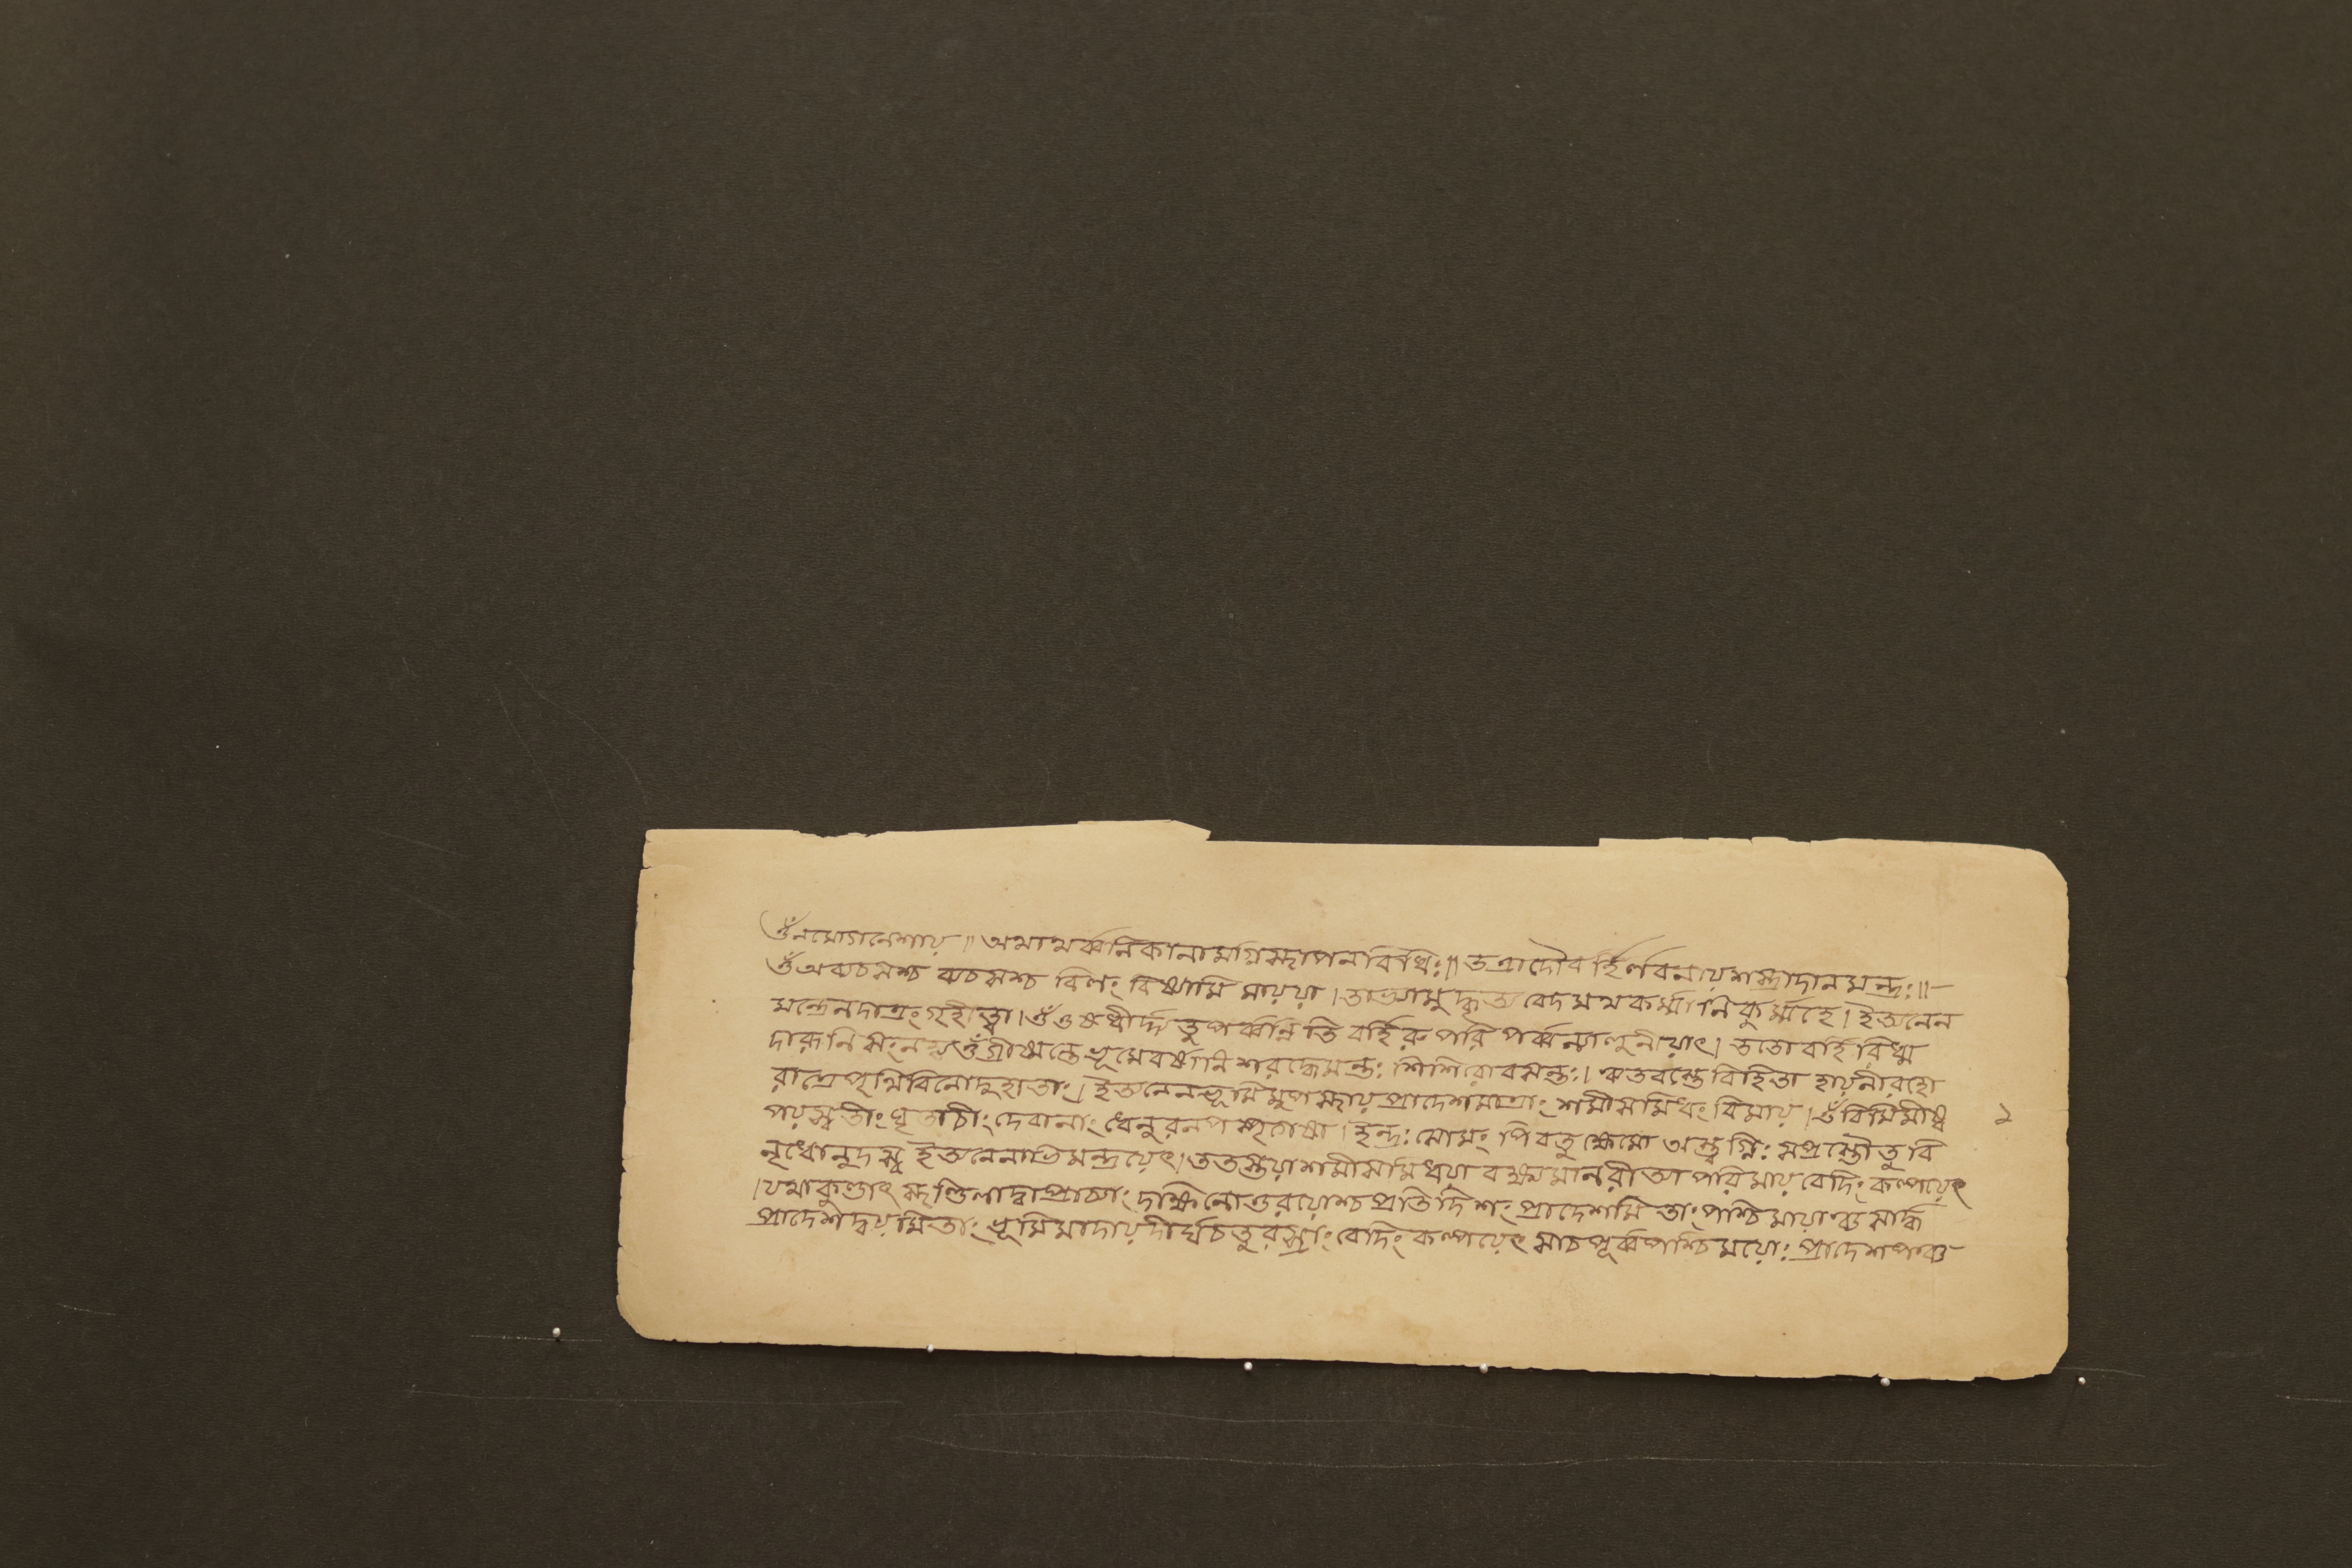 ওঁ নমোগনেশায়॥ অথাথর্ব্বনিকানামগ্নিস্থাপনবিধিঃ॥ তত্রাদৌবর্হির্লবনায়শস্ত্রাদানমন্ত্রঃ॥
ওঁ অব্যচসশ্চ ব্যচসশ্চ বিলং বিষ্যামি মায়য়া। তাভ্যামুদ্ধৃত্য বেদমথকর্ম্মানি কৃন্মহে। ইত্যনেন
মন্ত্রেনদাত্রংগৃহীত্বা। ওঁ ওষধীর্দ্দাতুপর্ব্বন্নিতি বর্হিরুপরি পর্ব্বন্যালুনীয়াৎ। ততোবর্হিরিধ্ম
দারূনি সংনহ্য ওঁ গ্রীষ্মস্তে ভূমেবর্ষানি শরদ্ধেমন্তঃ শিশিরোবসন্তঃ। ঋতবস্তে বিহিতা হায়নীরহো
রাত্রেপৃথিবিনোদুহাতাং। ইত্যনেনভূমিমুপস্থায়প্রাদেশমাত্রাং শমীসমিধং বিমায়। ওঁ বিমিমীষ্ব ১
পয়স্বতীং ঘৃতাচীং দেবানাং ধেনুরনপস্পৃগেষা। ইন্দ্রঃ সোমং পিবতু ক্ষেমো অস্ত্বগ্নিঃ সপ্রস্তৌতু বি
মৃধোনুদস্ব ইত্যনেনাভিমন্ত্রয়েৎ। ততস্তয়াশমীসমিধয়া বক্ষ্যমানরীত্যা পরিমায় বেদিং কল্পয়েৎ
। যথাকুণ্ডাৎ স্থণ্ডিলাদ্বাপ্রাচ্যাং দক্ষিনোত্তরয়োশ্চ প্রতিদিশং প্রাদেশমিতাং পশ্চিমায়াঞ্চ সার্দ্ধ
প্রাদেশদ্বয়মিতাং ভূমিমাদায় দীর্ঘচতুরস্রাং বেদিং কল্পয়েৎ সাচপূর্ব্বপশ্চিময়োঃ প্রাদেশপঞ্চ